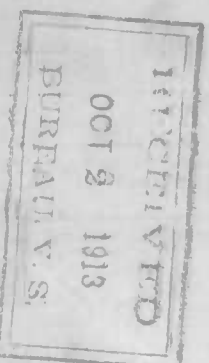 RECEIVED
OCT 2 1913
BUREAU. V. S.